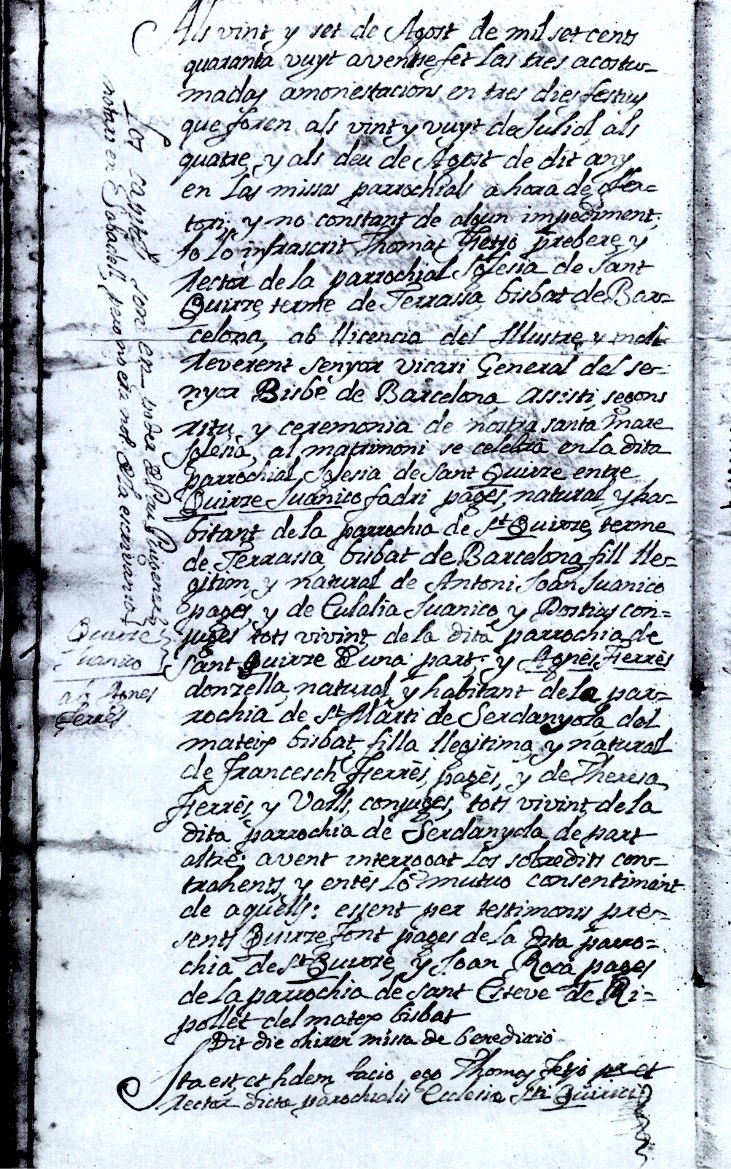 Als vint y set de Agost de mil set cents
quaranta vuyt avent se fet las tres acostu-
madas amonestacions en tres dies festius
que foren als vint y vuyt de Juliol, als
quatre, y als deu de Agost de dit any
en las missas parrochials a hora de ofer-
tori, y no constant de algun impediment,
Io lo infrascrit Thomas prebere, y
Rector de la parrochial Iglesia de Sant
Quirze, terme de Terrassa, bisbat de Bar-
celona, ab llicencia del Illustre, y molt
Reverent senyor Vicari General del se-
nyor Bisbe de Barcelona assisti, segons
ritu, y ceremonia de nostra santa mare
Iglesia, al matrimoni se celebra en la dita
parrochial Iglesia de Sant Quirze entre
Quirze Juanico fadri pages, natural, y ha-
bitant de la parrochia de St. Quirze, terme
de Terrassa, bisbat de Barcelona, fill lle-
gitim, y natural de Antoni Joan Juanico
pages, y de Eulalia Juanico, y con-
juges tots vivint de la dita parrochia de
Sant Quirze de una part: y Agnès Ferrès
donzella, natural, y habitant de la par-
rochia de St. Marti de Serdanyola, del
mateix bisbat, filla llegitima, y natural
de Francesch Ferrès, pagès, y de Theresa
Ferrès, y Valls, conjuges, tots vivint de la
dita parrochia de Serdanyola, de part
altre: avent interrogat los sobredits con-
trahents, y entès lo mutuo consentiment
de aquells: essent per testimonis pre-
sents Quirze Font pages de la dita parro-
chia de St. Quirze, y Joan Roca pages
de la parrochia de Sant Esteve de Ri-
pollet del mateix bisbat
Dit die missa de benedictio
Ita est et fidem facio ego Thomas pr. et
Rector dicta parochialis Ecclesia Sti. Quirici
Los capitols son en poder de
notari en Sabadell, pero no era not. de la escrivania
Quirze
Juanico
ab Agnes
Ferrès